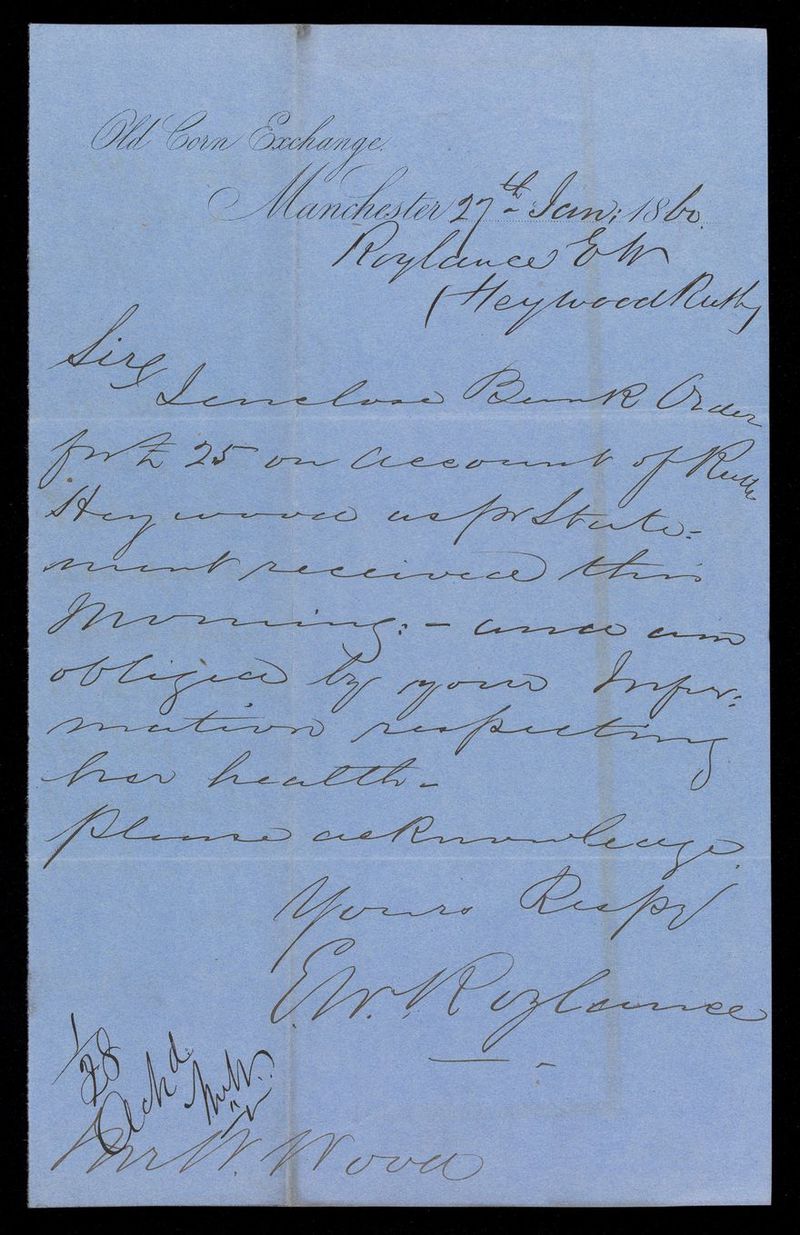 Old Corn Exchange.
Manchester 27th Jan: 1860.
Roylance E W
(Heywood Ruth)
Sir,
I enclose Bank Order
for £ 25 on account of Ruth
Heywood as pr State=
ment received this
Morning:- and am
obliged by your Infor=
mation respecting
her health-
please acknowledge
Yours Respy
E.W. Roylance
1/28
Ackd
Mr W. Wood